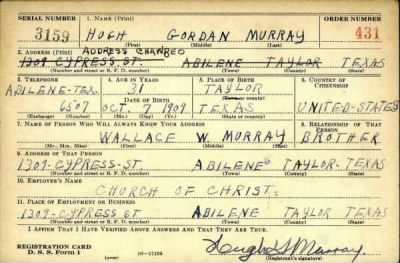 SERIAL NUMBER 1. NAME (Print) ORDER NUMBER
3159 HUGH GORDAN MURRAY 431
(First) (Middle) (Last)
2. ADDRESS (Print) ADDRESS CHANGED
1309 CYPRESS ST. ABILENE TAYLOR TEXAS
(Number and street or R. F. D. number) (Town) (County) (State)
3. TELEPHONE 4. AGE IN YEARS 5. PLACE OF BIRTH 6. COUNTRY OF CITIZENSHIP
ABILENE-TEX. 31 TAYLOR
DATE OF BIRTH (Town or county)
6507 OCT. 7 1909 TEXAS UNITED-STATES
(Exchange) (Number) (Mo.) (Day) (Yr.) (State or country)
7. NAME OF PERSON WHO WILL ALWAYS KNOW YOUR ADDRESS 8. RELATIONSHIP OF THAT PERSON
WALLACE W. MURRAY BROTHER
(Mr., Mrs., Miss) (First) (Middle) (Last)
9. ADDRESS OF THAT PERSON
1309-CYPRESS-ST. ABILENE TAYLOR. TEXAS
(Number and street or R. F. D. number) (Town) (County) (State)
10. EMPLOYER'S NAME
CHURCH OF CHRIST.
11. PLACE OF EMPLOYMENT OR BUSINESS
1309-CYPRESS ST ABILENE TAYLOR TEXAS
(Number and street or R. F. D. number) (Town) (County) (State)
I AFFIRM THAT I HAVE VERIFIED ABOVE ANSWERS AND THAT THEY ARE TRUE.
REGISTRATION CARD
D. S. S. Form 1 16-17105 Murray.
(Registrant's signature)